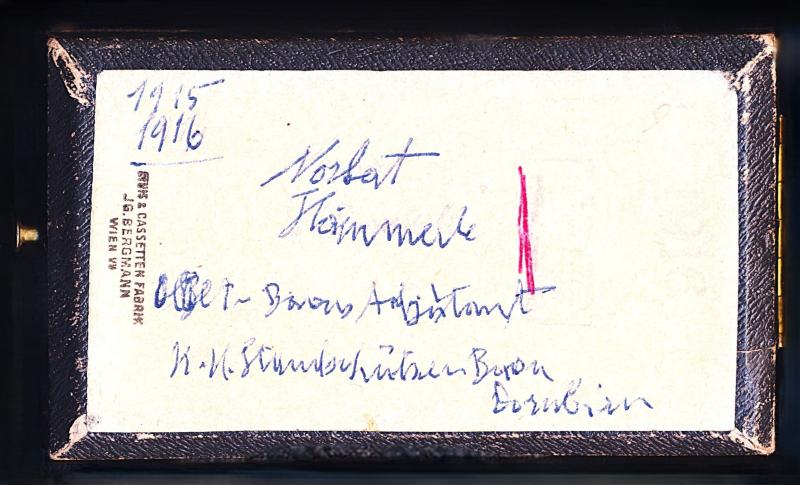 1915
1916
Norbert
Hämmerle
Baons Adjutant
K.K. Standschützen Baon
Dornbirn
ETUIS & CASSETTEN FABRIK
JG. BERGMANN
WIEN VII